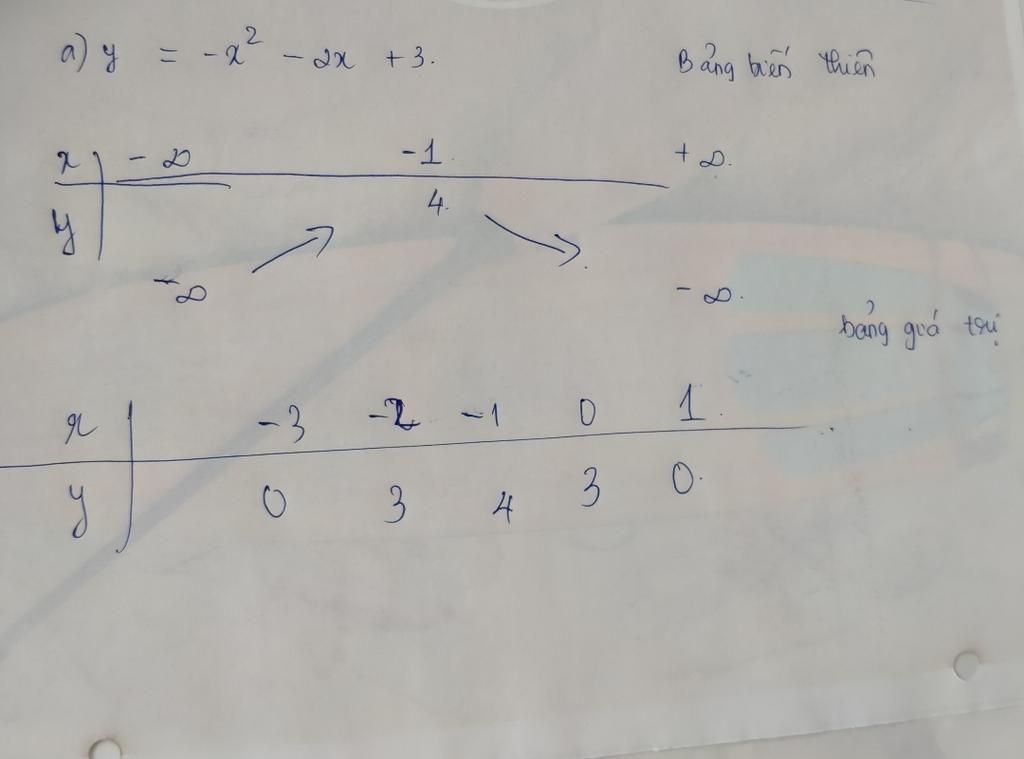 a) y = -x² - 2x + 3. Bảng biến thiên
x -∞ -1 +∞.
y 4.
-∞ -∞.
bảng giá trị
x -3 -2 -1 0 1.
y 0 3 4 3 0.